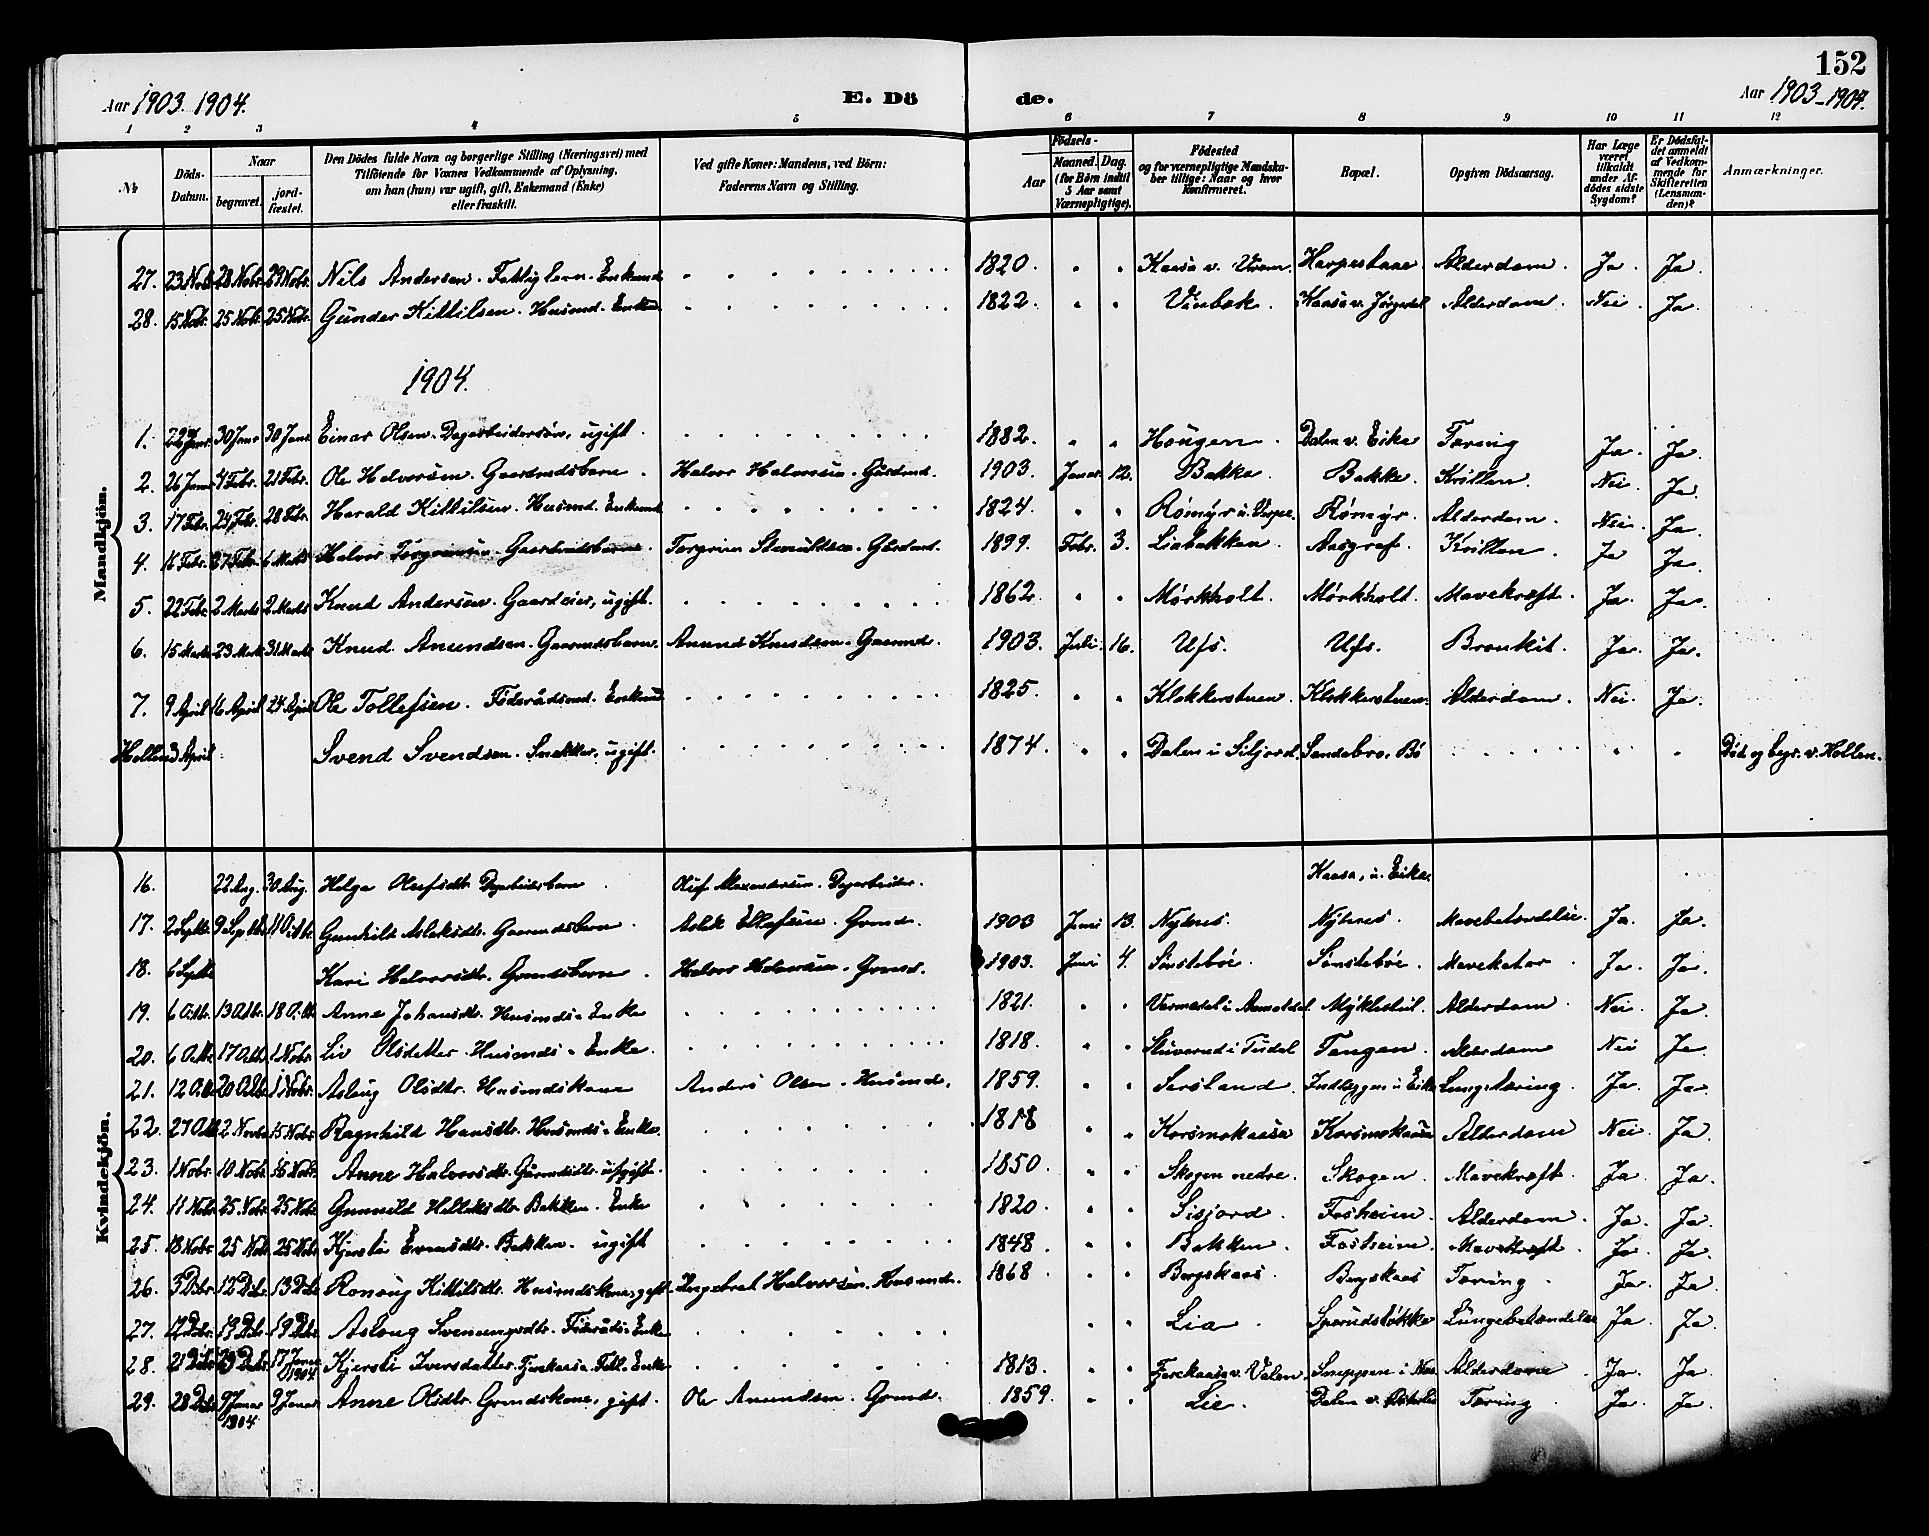 152
Aar 1903. 1904.
E. Döde.
Aar 1903-1904.
1 2 3 4 5 6 7 8 9 10 11 12
No
Döds-Datum.
Naar
begravet.
jord-fæstet.
Den Dödes fulde Navn og borgerlige Stilling (Næringsvei) med
Tilföiende for Voxnes Vedkommende af Oplysning,
om han (hun) var ugift, gift, Enkemand (Enke)
eller fraskilt.
Ved gifte Koner: Mandens, ved Börn:
Faderens Navn og Stilling.
Födsels-
Aar
Maaned. Dag.
(for Börn indtil
5 Aar samt
Værnepligtige).
Födested
og for værnepligtige Mandska-
ber tillige: Naar og hvor
konfirmeret.
Bopæl.
Opgiven Dödsaarsag.
Har Læge
været
tilkaldt
under Af-
dödes sidste
Sygdom?
Er Dödsfal-
det anmeldt
af Vedkom-
mende for
Skifteretten
(Lensman-
den)?
Anmærkninger.
Mandkjön.
27. 23 Nobr 28 Nobr 29 Nobr. Nils Andersen. Fattiglem. Enkemd 1820. Kaasa v. Harpestaae Alderdom. Ja. Ja.
28. 15 Nobr. 25 Nobr 25 Nobr. Günder Kittilsen. Husmd. Enkemd 1822. Vinbæk. Kaasa v. Alderdom. Nei. Ja.
1904.
1. 22 Janr. 30 Janr 30 Janr Einar Olsen. Dagarbeidersön, ugift. 1882. Hougen. Dalen v. Eika Tæring Ja. Ja.
2. 26 Janr 4 Febr. 21 Febr. Ole Halvorsen. Gaardmdsbarn. Halvor Halvorsen. Gårdmd. 1903. Januar 12. Bakka Bakka. Krillen. Nei. Ja.
3. 17 Febr. 24 Febr. 28 Febr. Harald Kittilsen. Husmd. Enkemd 1824. Rømyr u. Rømyr. Alderdom. Nei. Ja.
4. 18 Febr. 27 Febr. 6 Marts Halvor Torgrimsen. Gaardmdsbarn. Torgrim Gårdmd. 1899. Febr. 3. Liabakken. Aasgraf. Krillen. Ja Ja.
5. 22 Febr. 2 Marts 2 Marts Knud Andersen. Gaardeier, ugift. 1862. Mørkholt. Mørkholt. Mavekræft. Ja. Ja.
6. 15 Marts 23 Marts 31 Marts Knud Anundsen. Gaarmdsbarn. Anund Knudsen. Gaarmd. 1903. Juli. 16. Ufs. Ufs. Bronkit. Ja. Ja.
7. 9 April 16 April 24 April Ole Tollefsen. Föderådsmd. Enkemd 1825. Klokkerstuen. Klokkerstuen. Alderdom. Nei. Ja.
Hollen 3 April Svend Svendsen. Snekker, ugift. 1874. Dalen i Siljord. Sandebro. Bö Död og begr. v. Hollen.
Kvindekjön.
16. 22 Aug. 30 Aug. Helga Olufsdtr. Dagarbeidersbarn Oluf Alexandersen. Dagarbeider. Kaasa, u. Eika.
17. 2 Septbr 9 Septbr. 11 Oktbr. Gunhild Aslaksdtr. Gaarmdsbarn Aslak Ellefsen. Grmd. 1903 Juni 13. Nyhus. Nyhus. Mavebetændelse. Ja. Ja.
18. 6 Septbr Kari Halvorsdtr. Grmdsbarn. Halvor Halvorsen. Grmd. 1903. Juni 4. Sønstebøe. Sønstebøe. Mavekatar. Ja. Ja.
19. 6 Oktbr. 13 Oktbr. 18 Oktbr. Anne Johansdtr. Husmds Enke 1821. i Myklestul. Alderdom Nei. Ja.
20. 6 Oktbr. 17 Oktbr. 1 Nobr. Liv Olsdatter. Husmds Enke. 1818. i Tudal Tangen. Alderdom Nei Ja.
21. 12 Oktbr 20 Oktbr 1 Nobr. Aslaug Olsdtr. Husmdskone Anders Olsen. Husmd. 1859. Sersland. u Eika Lungetæring. Ja. Ja.
22. 27 Oktbr 2 Novbr 15 Nobr. Ragnhild Hansdtr. Husmds Enke. 1818 Korsmokaasa Korsmokaasa Alderdom Nei. Ja
23. 1 Nobr. 10 Nobr 15 Nobr. Anne Halvorsdtr. Gårmdsdtr. ugift. 1850. Skogen nedre. Skogen. Mavekræft. Ja. Ja.
24. 11 Nobr 25 Nobr. 25 Nobr Gunnild Bakken. Enke 1820. Siljord. Fosheim. Alderdom. Ja. Ja.
25. 18 Nobr. 25 Nobr. 25 Nobr. Kjersti Bakken. ugift 1848. Bakken. Fosheim. Mavekræft. Ja. Ja.
26. 5 Debr. 12 Debr. 13 Debr. Ronoug Kittilsdtr. Husmdskone, gift. Ingebret Halvorsen. Husmd. 1868 Borgskaas. Borgskaas Tæring. Ja. Ja
27. 12 Debr. 19 Debr. 19 Debr. Aslaug Svenungsdtr. Föderåds Enke Lia. Lungebetændelse Ja. Ja
28. 21 Debr 29 Debr 17 Januar 1904 Kjersti Iversdatter. Enke 1813. Alderdom. Ja. Ja
29. 28 Debr 9 Januar 1904 9 Januar Anne Olsdtr. Grmdskone, gift. Ole Anundsen. Grmd. 1859. Lie. Dalen v. Tæring Ja. Ja.